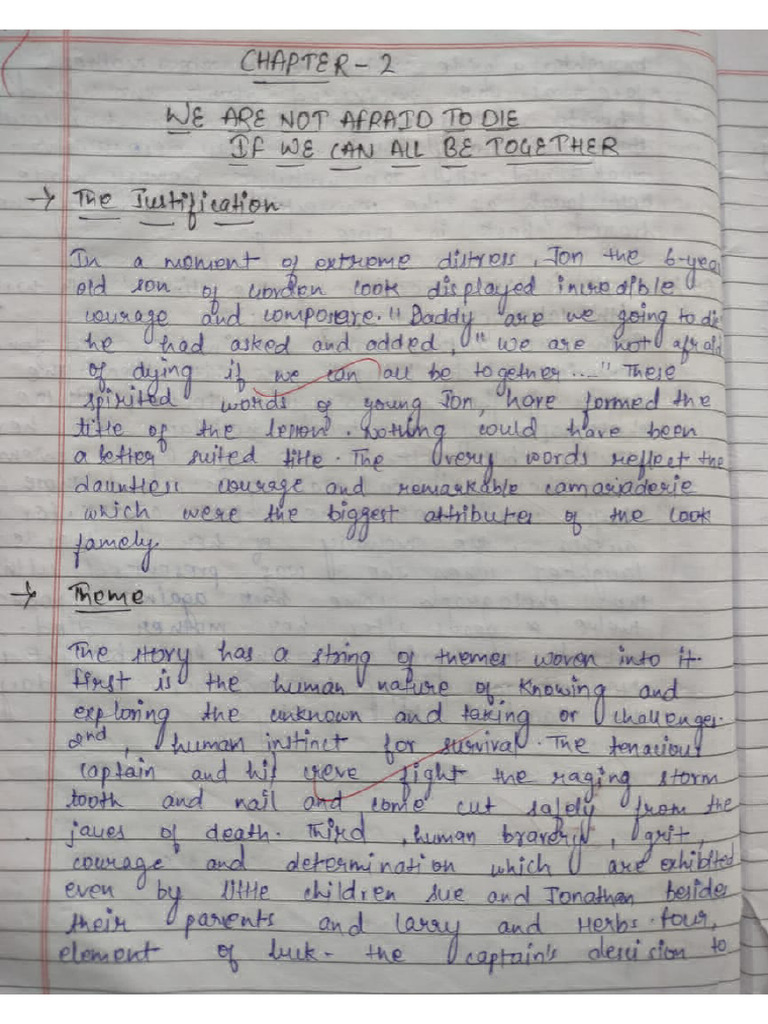 CHAPTER - 2
WE ARE NOT AFRAID TO DIE
IF WE CAN ALL BE TOGETHER
→ The Justification
In a moment of extreme distress, Jon the 6-year
old son of worden cook displayed incredible
courage and composere. "Daddy are we going to die
he had asked and added, "we are not afraid
of dying if we can all be together...." These
spirited words of young Jon, have formed the
title of the lesson. Nothing could have been
a better suited title. The very words reflect the
dauntless courage and remarkable camariaderie
which were the biggest attributes of the cook
famely.
→ Theme
The story has a string of themes woven into it.
first is the human nature of knowing and
exploring the unknown and taking or challenges.
2nd, human instinct for survival. The tenacious
captain and his creve fight the raging storm
tooth and nail and come out safely from the
jaues of death. Third, human bravery, grit,
courage and determination which are exhibited
even by little children sue and Jonathan besides
their parents and larry and Herbs. four,
element of luck - the captain's descision to